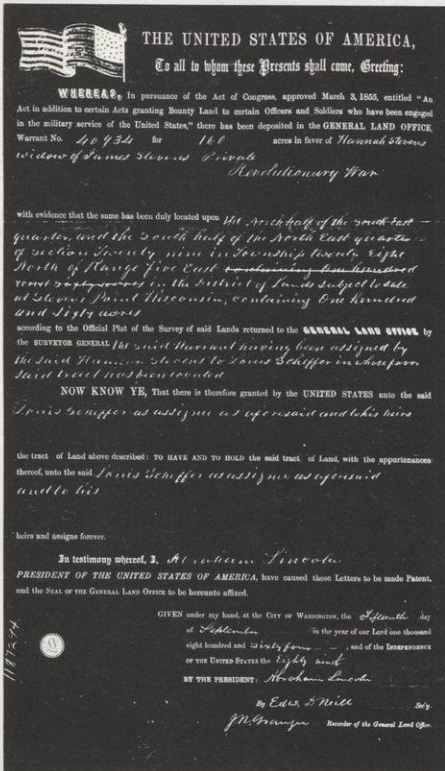 THE UNITED STATES OF AMERICA,
To all to whom these Presents shall come, Greeting:
WHEREAS, In pursuance of the Act of Congress, approved March 3, 1855, entitled "An
Act in addition to certain Acts granting Bounty Land to certain Officers and Soldiers who have been engaged
in the military service of the United States," there has been deposited in the GENERAL LAND OFFICE,
Warrant No. 40934 for 160 acres in favor of Hannah Stevens
widow of James Stevens Private
Revolutionary War
with evidence that the same has been duly located upon the North half of the South East
quarter, and the South half of the North East quarter
of Section Twenty nine in Township twenty Eight
North of Range Five East containing One hundred
in the District of Lands subject to sale
at Stevens Point Wisconsin, containing One Hundred
and Sixty acres
according to the Official Plat of the Survey of said Lands returned to the GENERAL LAND OFFICE by
the SURVEYOR GENERAL the said Warrant having been assigned by
the said Hannah Stevens to Louis Scheffer in whose favor
said tract has been located
NOW KNOW YE, That there is therefore granted by the UNITED STATES unto the said
Louis Scheffer as assignee as aforesaid and to his heirs
the tract of Land above described: TO HAVE AND TO HOLD the said tract of Land, with the appurtenances
thereof, unto the said Louis Scheffer as assignee as aforesaid
and to his
heirs and assigns forever.
In testimony whereof, I, Abraham Lincoln
PRESIDENT OF THE UNITED STATES OF AMERICA, have caused these Letters to be made Patent,
and the SEAL OF THE GENERAL LAND OFFICE to be hereunto affixed.
GIVEN under my hand, at the CITY OF WASHINGTON, the Fifteenth day
of September in the year of our Lord one thousand
eight hundred and Sixty four, and of the INDEPENDENCE
OF THE UNITED STATES the Eighty ninth
BY THE PRESIDENT: Abraham Lincoln
By Edw. D Neill Sec'y.
J.N. Granger Recorder of the General Land Office.